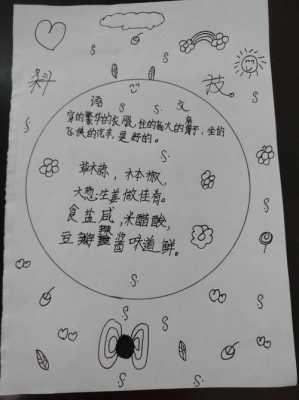 科 技
语 文
穿的繁华的衣服,住的高大的房子,坐的
飞快的汽车,是野的。
草木综,木本椒,
大葱生姜做佳肴。
食盐咸,米醋酸,
豆瓣辣酱味道鲜。